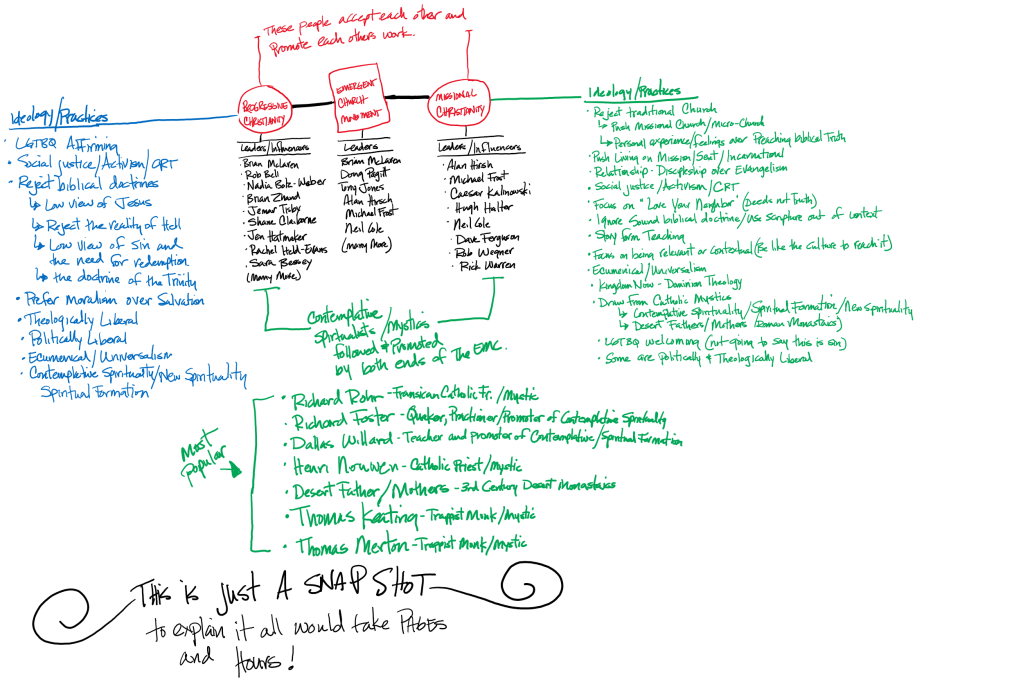 These people accept each other and
Promote each others work.
PROGRESSIVE
CHRISTIANITY
EMERGENT
CHURCH
MOVEMENT
MISSIONAL
CHRISTIANITY
Ideology/Practices
• LGTBQ Affirming
• Social justice/Activism/CRT
• Reject biblical doctrines
↳ Low view of Jesus
↳ Reject the reality of Hell
↳ Low view of Sin and
the need for redemption
↳ the doctrine of the Trinity
• Prefer Moralism over Salvation
• Theologically Liberal
• Politically Liberal
• Ecumenical/Universalism
• Contemplative Spirituality/New Spirituality
Spiritual Formation
Leaders/Influencers
Brian McLaren
Rob Bell
Nadia Bolz-Weber
Brian Zhand
Jemar Tisby
Shane Claiborne
Jen Hatmaker
Rachel Held-Evans
Sara Bessey
(Many More)
Leaders
Brian McLaren
Doug Pagitt
Tony Jones
Alan Hirsch
Michael Frost
Neil Cole
(many More)
Leaders/Influencers
Alan Hirsh
Michael Frost
Caesar Kalinowski
Hugh Halter
Neil Cole
Dave Ferguson
Rob Wegner
Rick Warren
Ideology/Practices
• Reject traditional Church
↳ Push Missional Church/Micro-Church
↳ Personal experience/feelings over Preaching biblical Truth
• Push Living on Mission/Sent/Incarnational
• Relationship - Discipleship over Evangelism
• Social justice/Activism/CRT
• Focus on "Love Your Neighbor" (Deeds not Truth)
• Ignore Sound biblical doctrine/Use scripture out of context
• Story form Teaching
• Focus on being relevant or contextual (Be like the Culture to reach it)
• Ecumenical/Universalism
• Kingdom Now - Dominion Theology
• Draw From Catholic Mystics
↳ Contemplative Spirituality/Spiritual Formation/New Spirituality
↳ Desert Fathers/Mothers (Roman Monastics)
• LGTBQ welcoming (not going to say this is sin)
• Some are Politically & Theologically Liberal
Contemplative
Spiritualists/Mystics
followed & Promoted
by both ends of The EMC.
Most
Popular
• Richard Rohr - Fransican Catholic Fr./Mystic
• Richard Foster - Quaker, Practioner/Promoter of Contemplative Spirituality
• Dallas Willard - Teacher and Promoter of Contemplative/Spiritual Formation
• Henri Nouwen - Catholic Priest/Mystic
• Desert Father/Mothers - 3rd Century Desert Monastics
• Thomas Keating - Trappist Monk/Mystic
• Thomas Merton - Trappist Monk/Mystic
THIS is just A SNAP SHOT
to explain it all would take PAGES
and Hours!